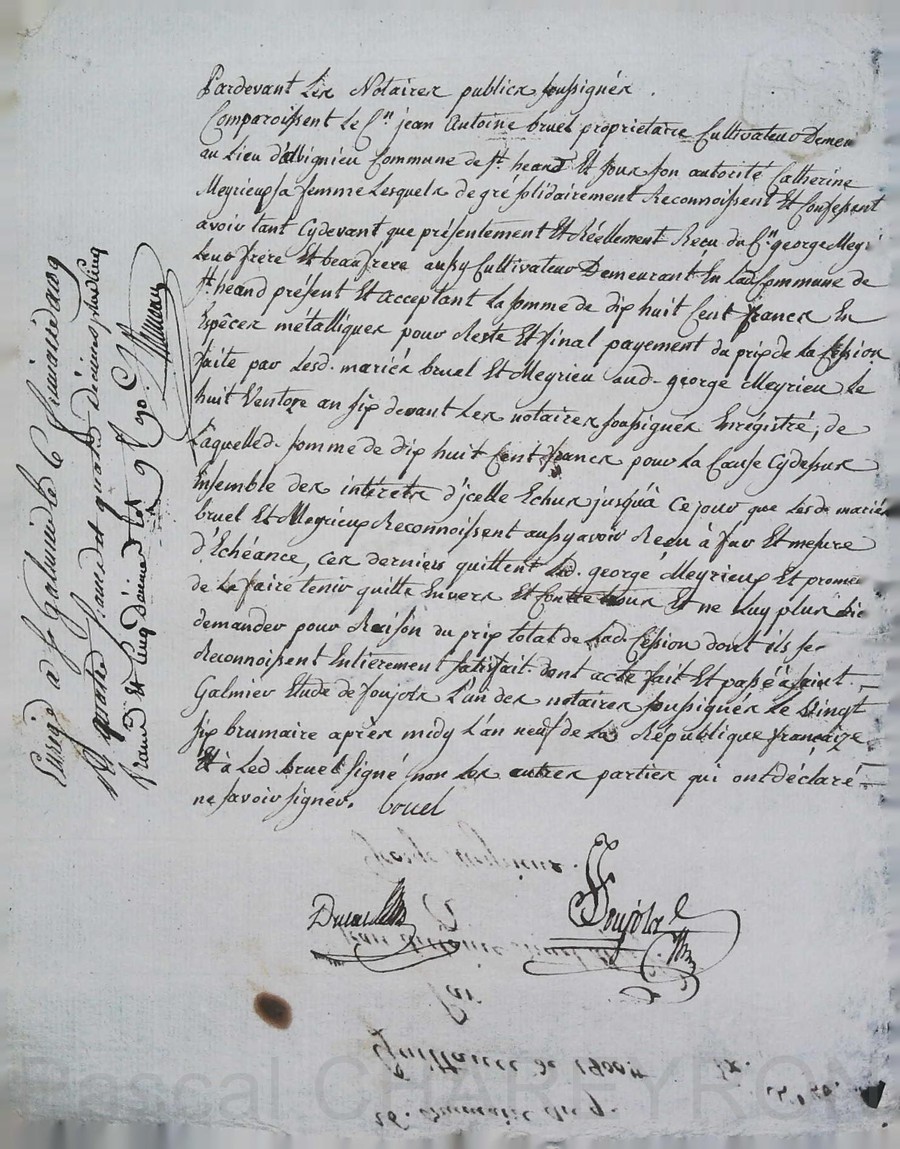 Pardevant Les Notaires publics soussignés.
Comparoissent Le C.en jean Antoine bruel proprietaire Cultivateur Demeu
au Lieu d'albignieu Commune de St. heand Et sous son autorité Catherine
Meyrieu sa femme Lesquels de gré solidairement Reconnoissent Et Confessent
avoir tant Cydevant que présentement Et Réellement Recu du C.en george Meyri
Leur frere Et beaufrere aussy Cultivateur Demeurant En Lad. Commune de
St. heand présent Et acceptant La somme de dix huit Cent francs En
Espèces métalliques pour Reste Et final payement du prix de La Cession
faite par Lesd. mariés bruel Et Meyrieu aud. george Meyrieu Le
huit Ventose an six devant Les notaires soussignés Enrégistré, de
Laquelled. somme de dix huit Cent francs pour La Cause Cydessus
Ensemble des intérets d'jcelle Echus jusquà Ce jour que Lesd. mariés
bruel Et Meyrieux Reconnoissent aussy avoir Recu à fur Et mesure
d'Echéance, ces derniers quittent Led. george Meyrieux Et promet
de Le faire tenir quitte Envers Et Contre tous Et ne Luy plus Rie
demander pour Raison du prix total de Lad. Cession dont ils se
Reconnoissent Entièrement satisfait. dont acte fait Et passé à saint
Galmier Etude de soujols L'un des notaires soussignés Le Vingt
six brumaire après midy L'an neuf de La République françaize
Et à Led. bruel signé non Les autres parties qui ont déclaré
ne savoir signer. bruel
Soujols
Nre
Enrgé à St. Galmier Le 6 frimaire an 9
franc Et Cinq
Par
Quittance de 1800
26. brumaire an 9.
Pascal CHAREYRON